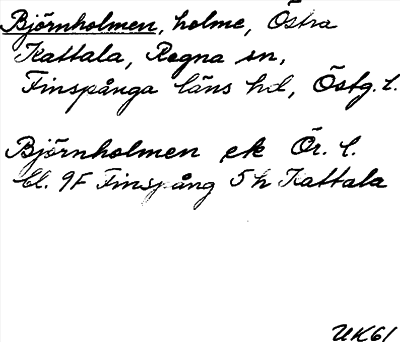 Björnholmen, holme, Östra
Kattala, Regna sn,
Finspånga läns hd, Östg. l.
Björnholmen ek Ör. l.
bl. 9F Finspång 5h Kattala
UK61